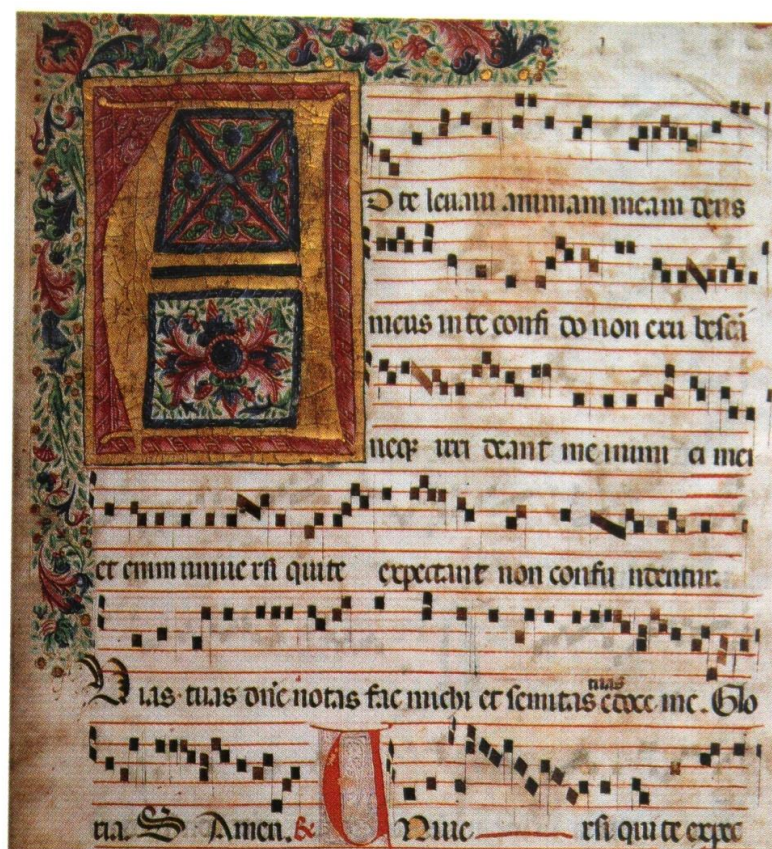 AD te levavi animam meam deus
meus in te confi do non eru besca
neqꝫ irri deant me inimi ci mei
et enim unive rsi qui te expectant non confu ndentur.
Vias tuas dn̄e notas fac michi et semitas tuas edoce me. Glo
ria. S Amen. Unive rsi qui te expec